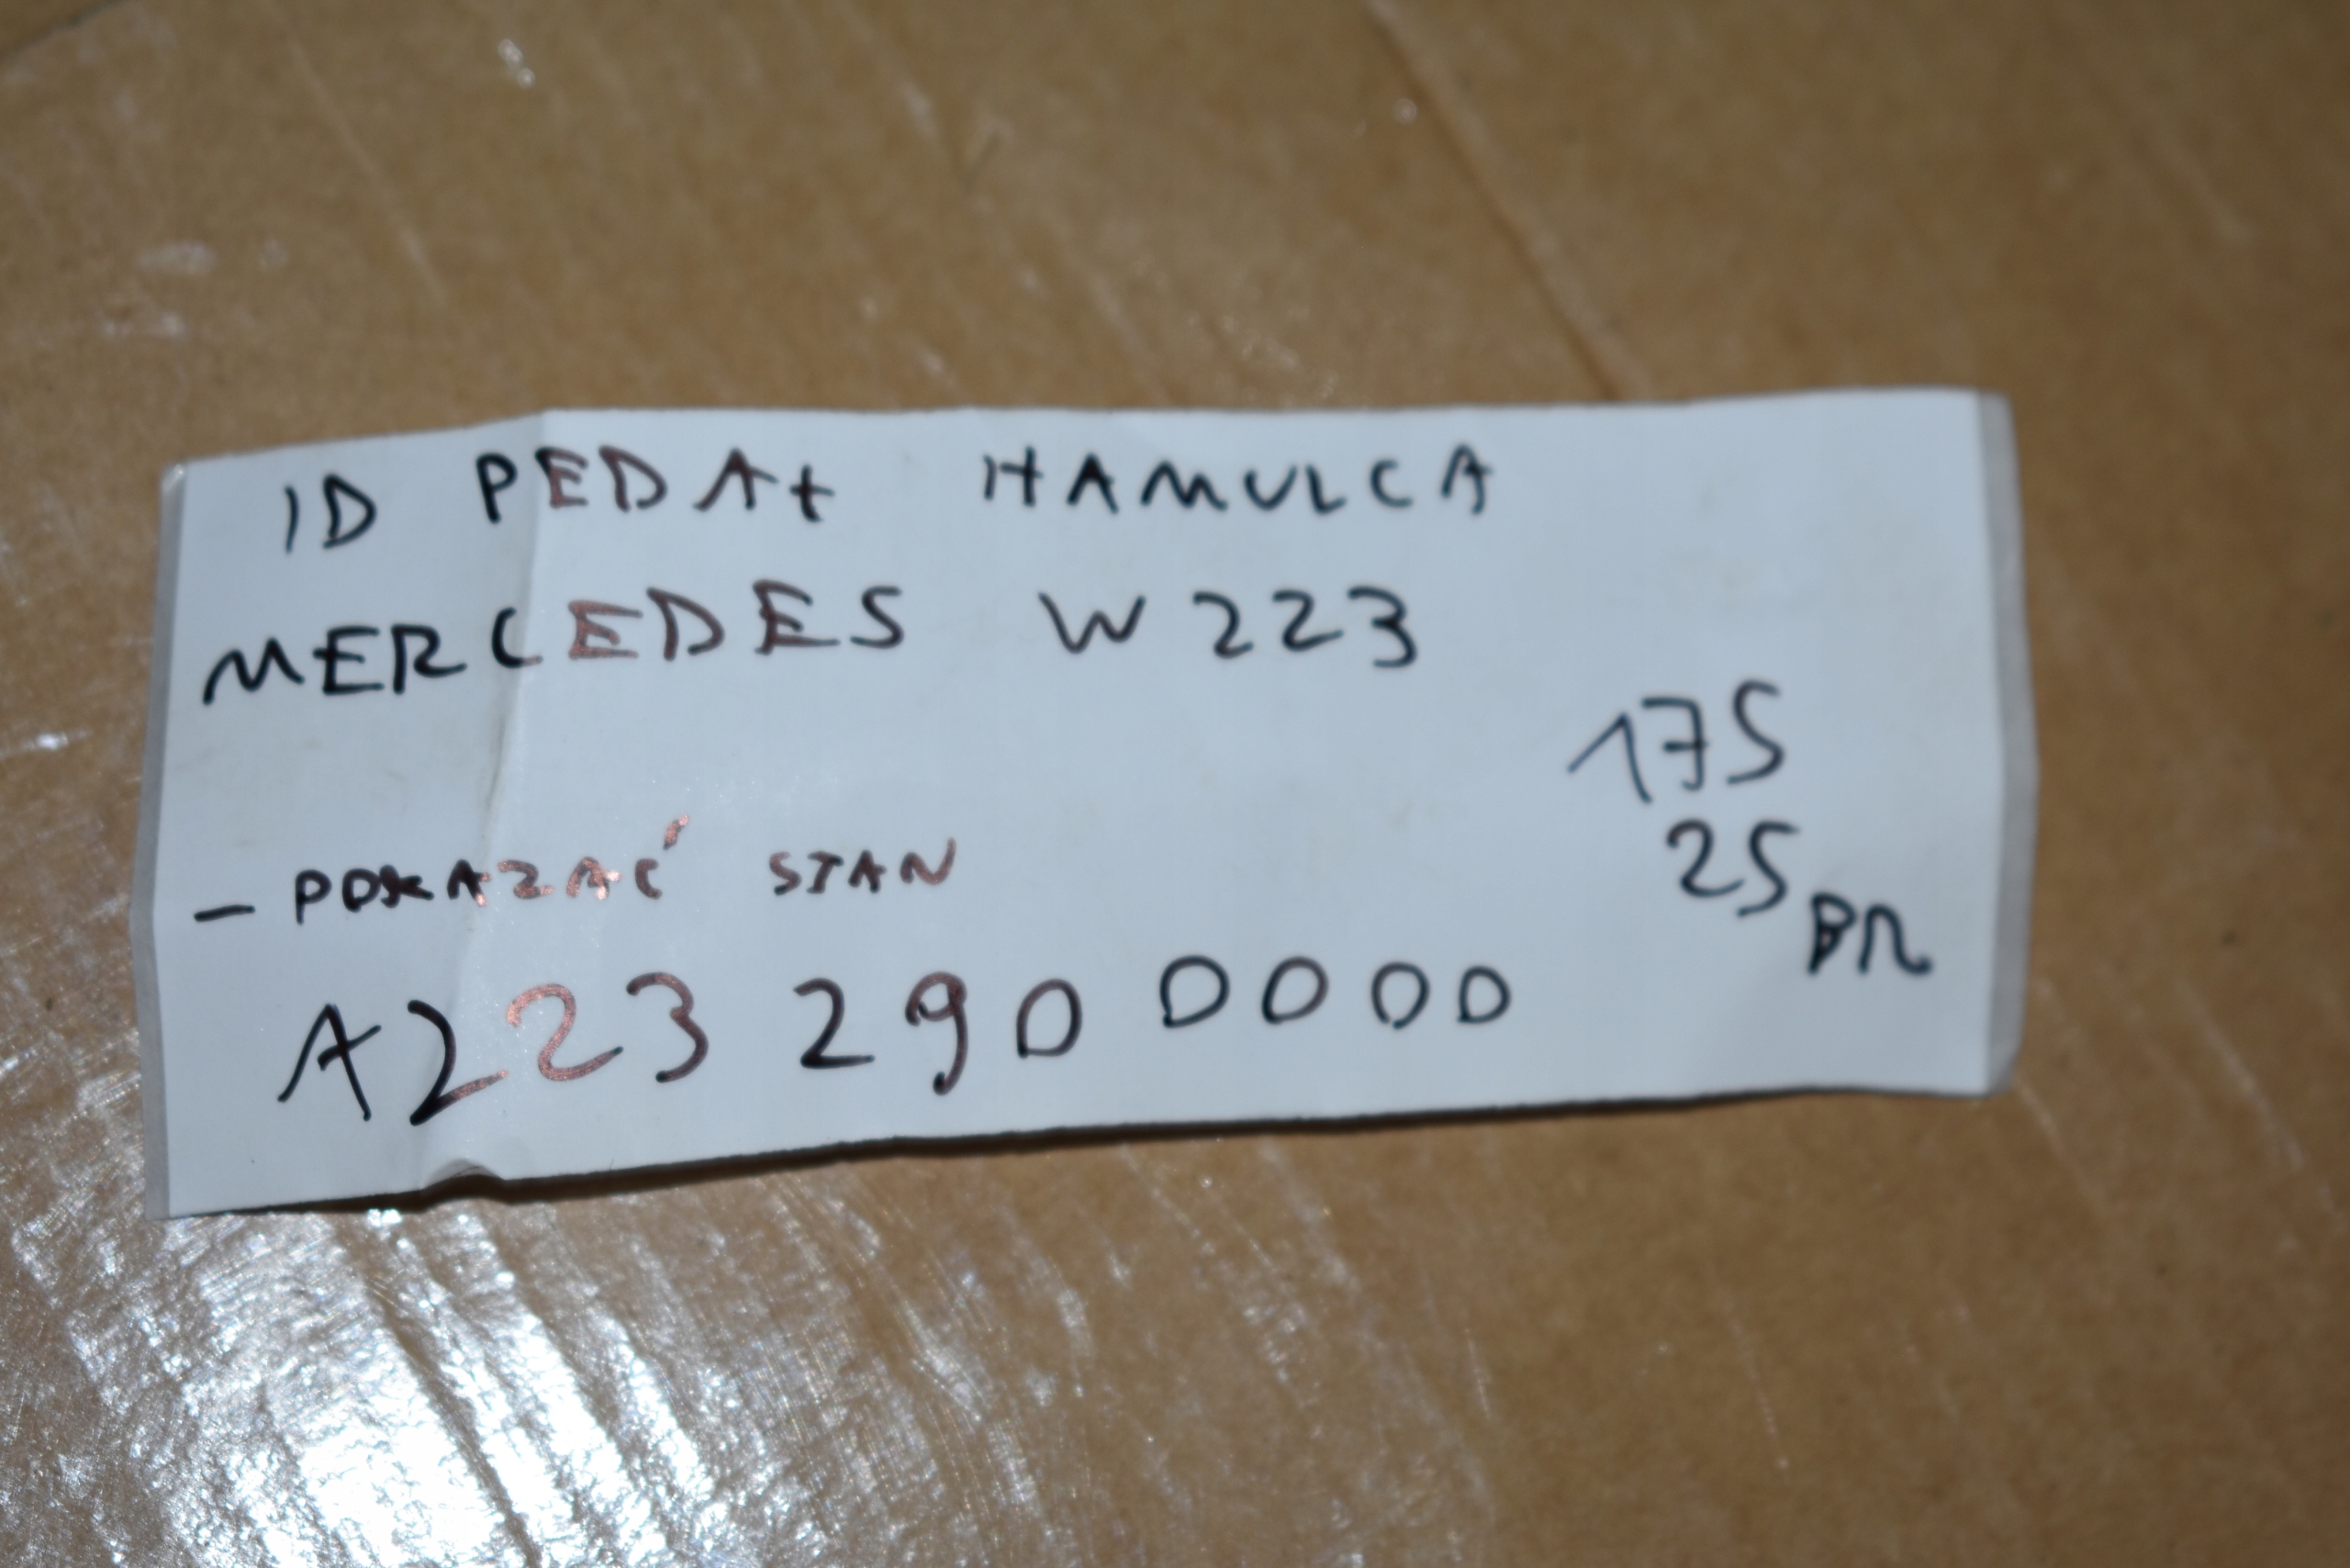 ID PEDAŁ HAMULCA
MERCEDES W223
175
25
BR
- POKAZAĆ STAN
A223 290 0000